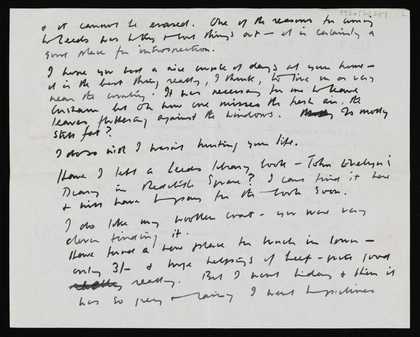 & it cannot be erased. One of the reasons for coming
to Leeds was to try & sort things out — it is certainly a
good place for introspection.
I hope you had a nice couple of days at your home —
it is the best thing really, I think, to live in or very
near the country. It was necessary for me to leave
but oh how one misses the fresh air, the
leaves fluttering against the windows. Is Molly
still fat?
I do so wish I wasn't hurting your life.
Have I left a Leeds library book — John Evelyn's
Diary in Redcliffe Square? I can't find it here
& will have to pay for the book soon.
I do like my woollen coat — you were very
clever finding it.
Have found a new place for lunch in town —
only 3/- & huge helpings of beef - quite good
really. But I went today & then it
was so grey & rainy I went